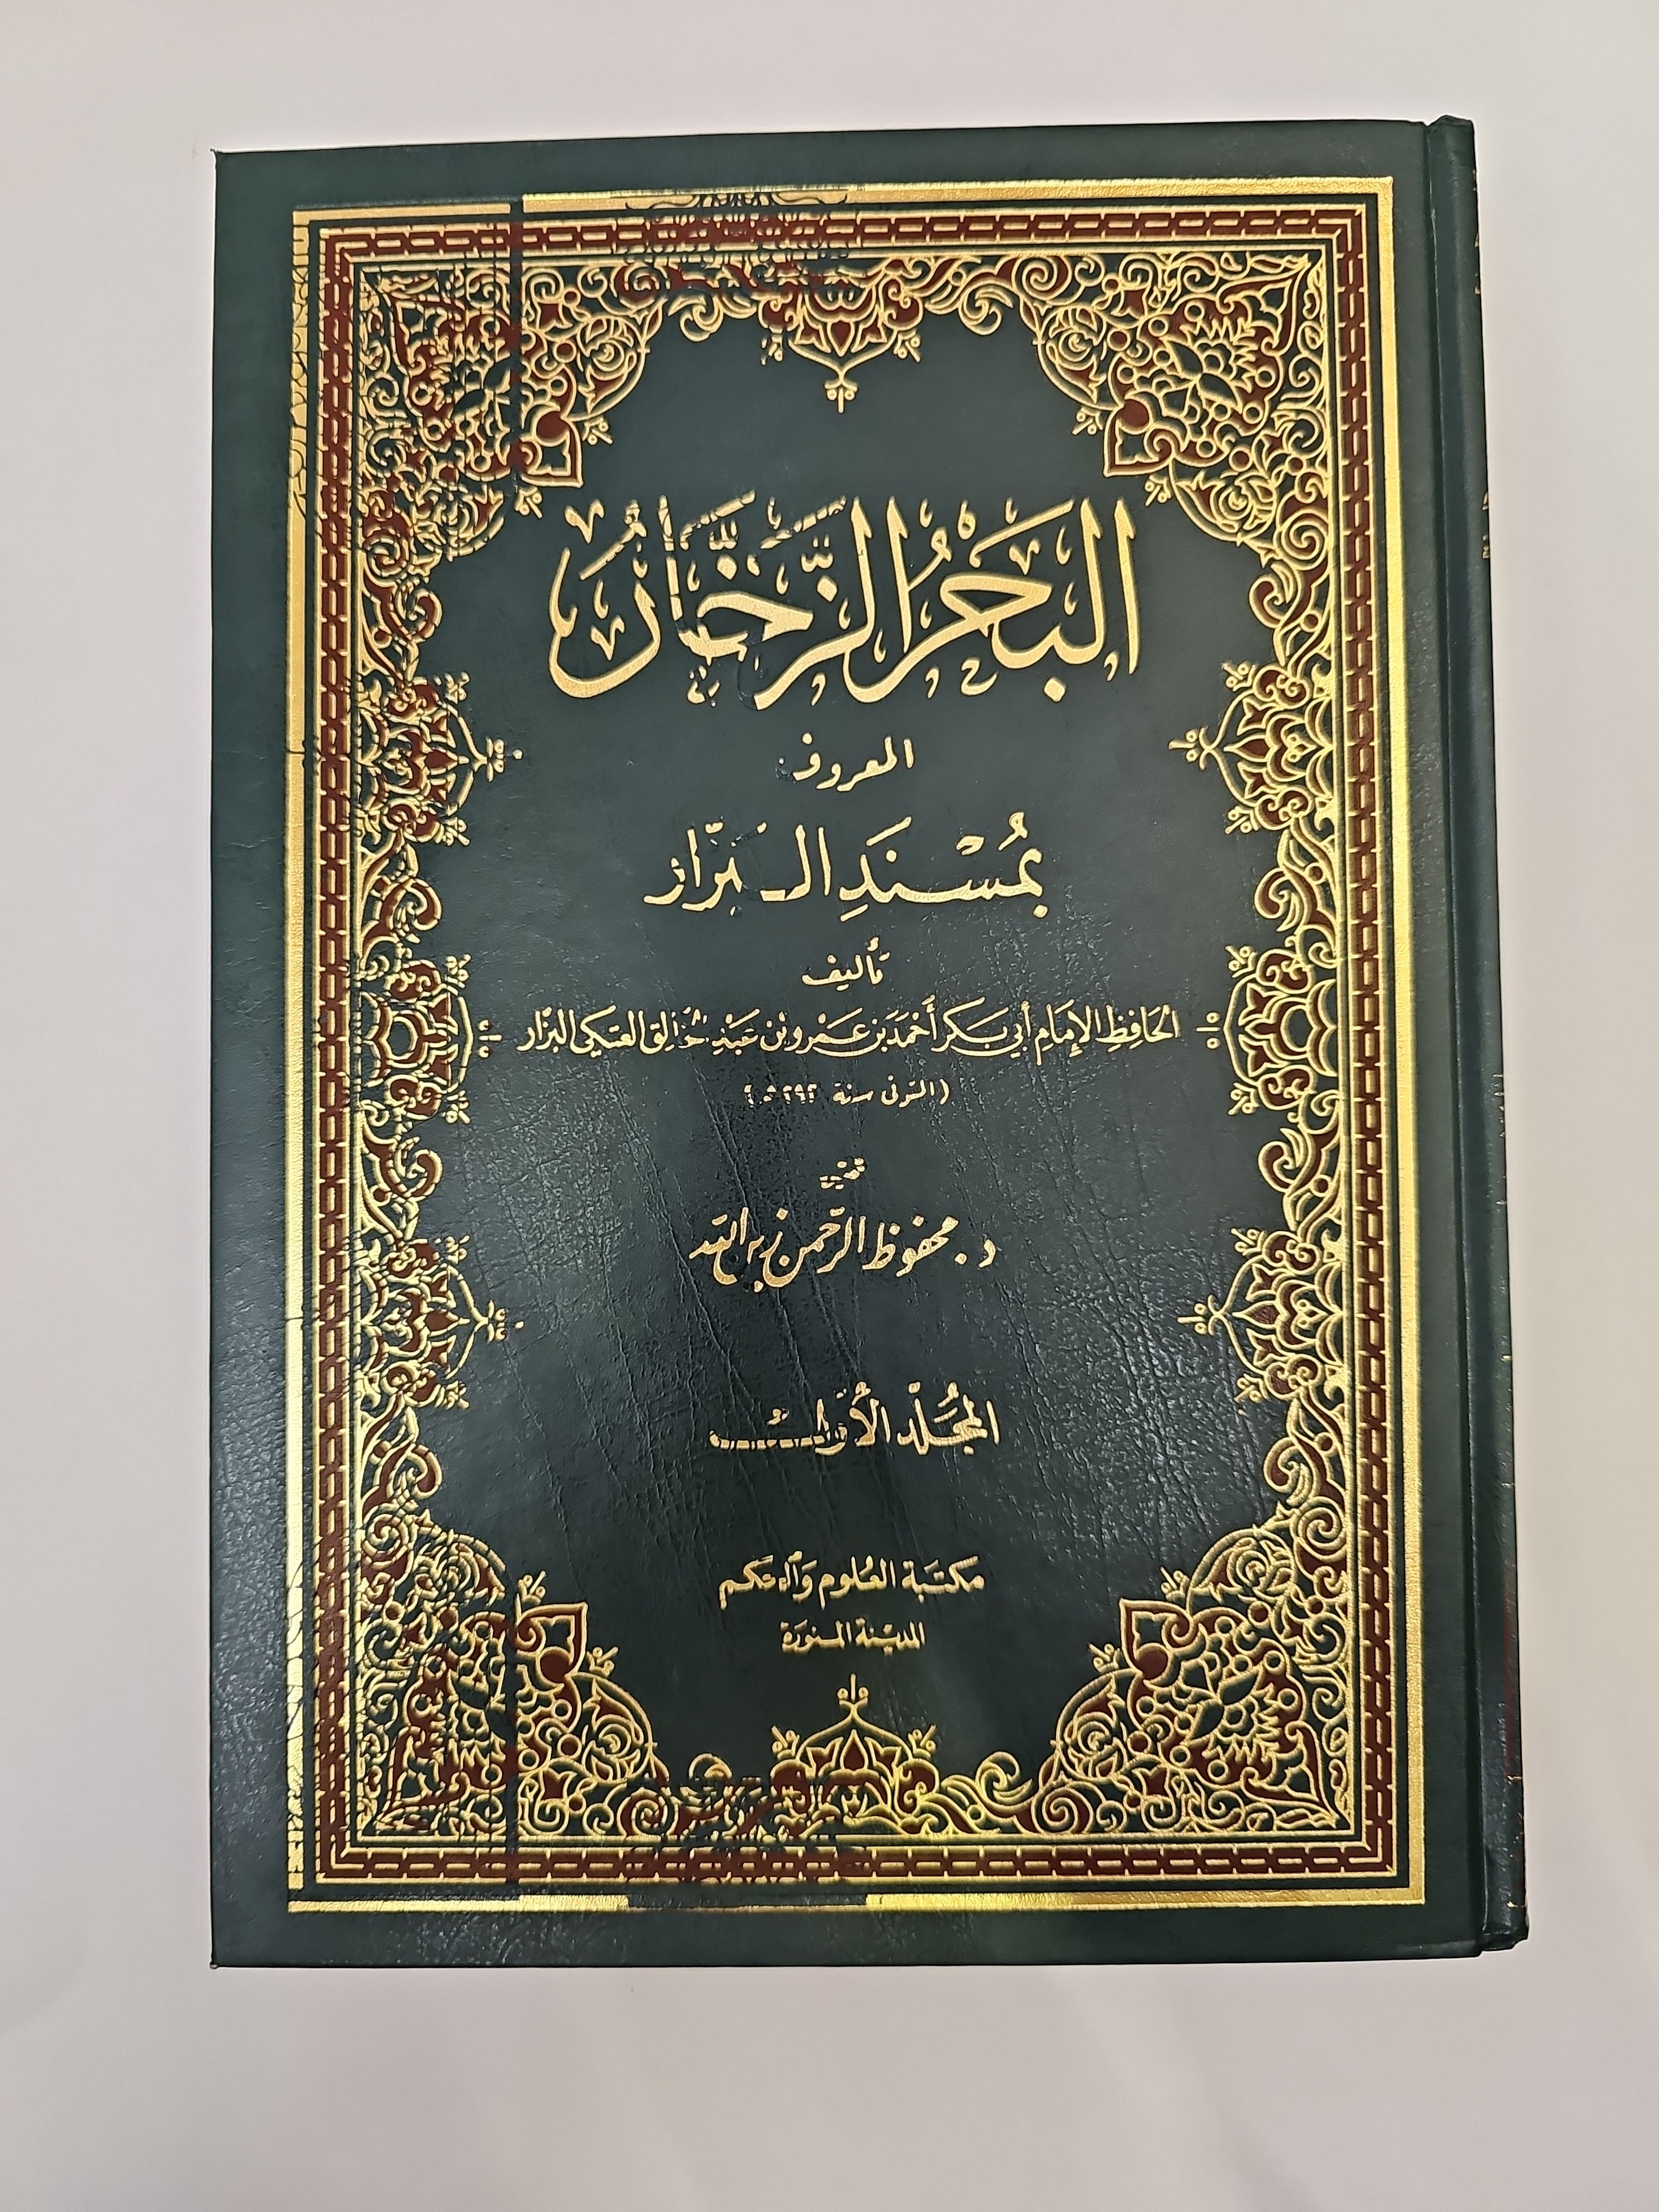 البَحْرُ الزَّخَّارُ
المعروف
بمُسْنَدِ البزّار
تأليف
الحَافِظِ الإِمَامِ أَبي بَكر أَحْمَد بن عَمْرو بْن عَبْدِ الخَالِق العتكي البزّار
(المتوفى سنة ٢٩٢ هـ)
تحقيق
د. محفوظ الرحمن زين الله
المُجَلّد الأوّلُ
مكتَبة العُلوم وَالحِكم
المدينة المنورة